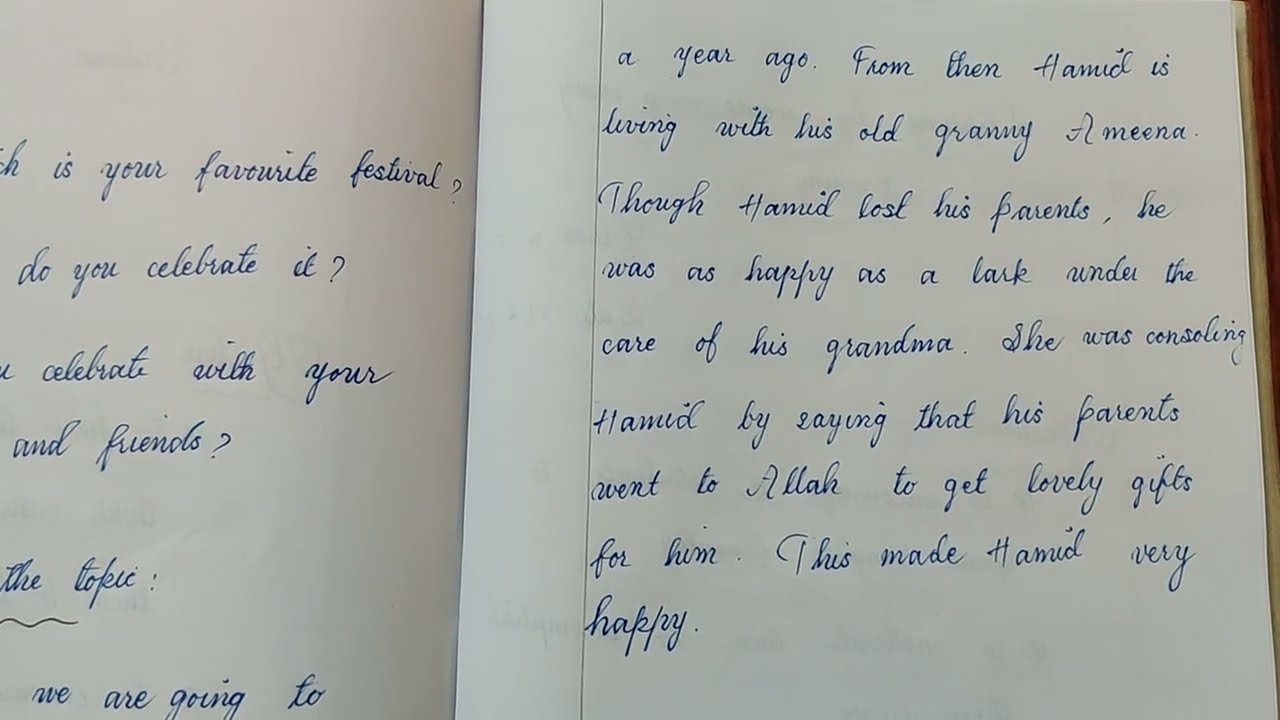 is your favourite festival?
do you celebrate it?
celebrate with your
and friends?
the topic:
we are going to
a year ago. From then Hamid is
living with his old granny Ameena.
Though Hamid lost his parents, he
was as happy as a lark under the
care of his grandma. She was consoling
Hamid by saying that his parents
went to Allah to get lovely gifts
for him. This made Hamid very
happy.